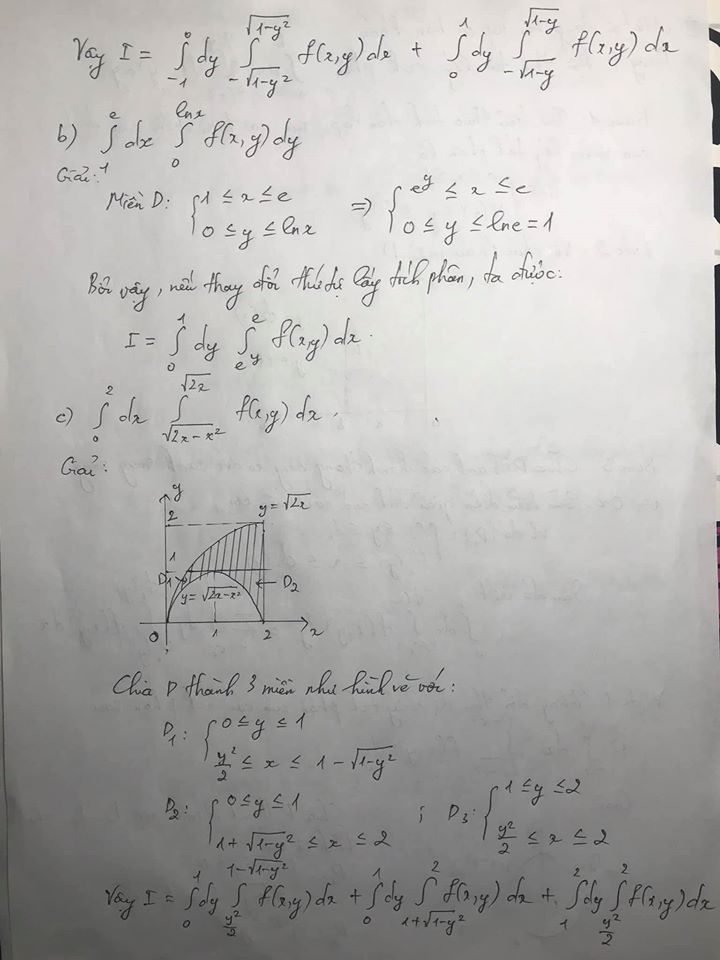 Vậy I = ∫_{-1}^{0} dy ∫_{-√(1-y²)}^{√(1-y²)} f(x,y) dx + ∫_{0}^{1} dy ∫_{-√(1-y)}^{√(1-y)} f(x,y) dx
b) ∫_{1}^{e} dx ∫_{0}^{lnx} f(x,y) dy
Giải:
Miền D: { 1 ≤ x ≤ e ; 0 ≤ y ≤ lnx => { e^y ≤ x ≤ e ; 0 ≤ y ≤ lne = 1
Bởi vậy, nếu thay đổi thứ tự lấy tích phân, ta được:
I = ∫_{0}^{1} dy ∫_{e^y}^{e} f(x,y) dx.
c) ∫_{0}^{2} dx ∫_{√(2x-x²)}^{√(2x)} f(x,y) dx.
Giải:
y
2 y = √(2x)
1
D1 D2
y = √(2x-x²)
0 1 2 x
Chia D thành 3 miền như hình vẽ với:
D1: { 0 ≤ y ≤ 1 ; y²/2 ≤ x ≤ 1 - √(1-y²)
D2: { 0 ≤ y ≤ 1 ; 1 + √(1-y²) ≤ x ≤ 2 ; D3: { 1 ≤ y ≤ 2 ; y²/2 ≤ x ≤ 2
Vậy I = ∫_{0}^{1} dy ∫_{y²/2}^{1-√(1-y²)} f(x,y) dx + ∫_{0}^{1} dy ∫_{1+√(1-y²)}^{2} f(x,y) dx + ∫_{1}^{2} dy ∫_{y²/2}^{2} f(x,y) dx